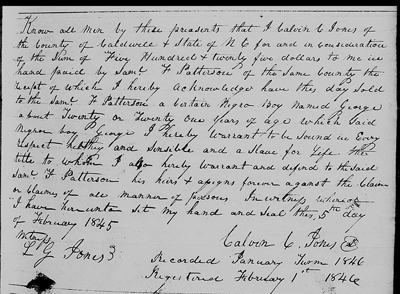 Know all men by these presents that I Calvin C Jones of
the County of Caldwell & State of N C for and in consideration
of the Sum of Five Hundred & twenty five dollars to me in
hand pauid by Saml F Patterson of the Same County the
recept of which I hereby Acknowledge have this day Sold
to the Saml F Patterson a Certain Nigro Boy Named George
about Twenty or Twenty One years of age which Said
Nigrow boy George I hereby Warrant to be Sound in Evry
respect helthey and Sinsible and a Slave for Life the
title to whom I also hereby Warrant and defend to the Said
Saml F Patterson his heirs & assigns forever against the Claim
or Claimes of all manner of persons In witness whereof
I have hereunto Sit my hand and Seal this 5th day
of February 1845
Calvin C. Jones
L G Jones
Recorded January Turm 1846
Registered February 1st 1846